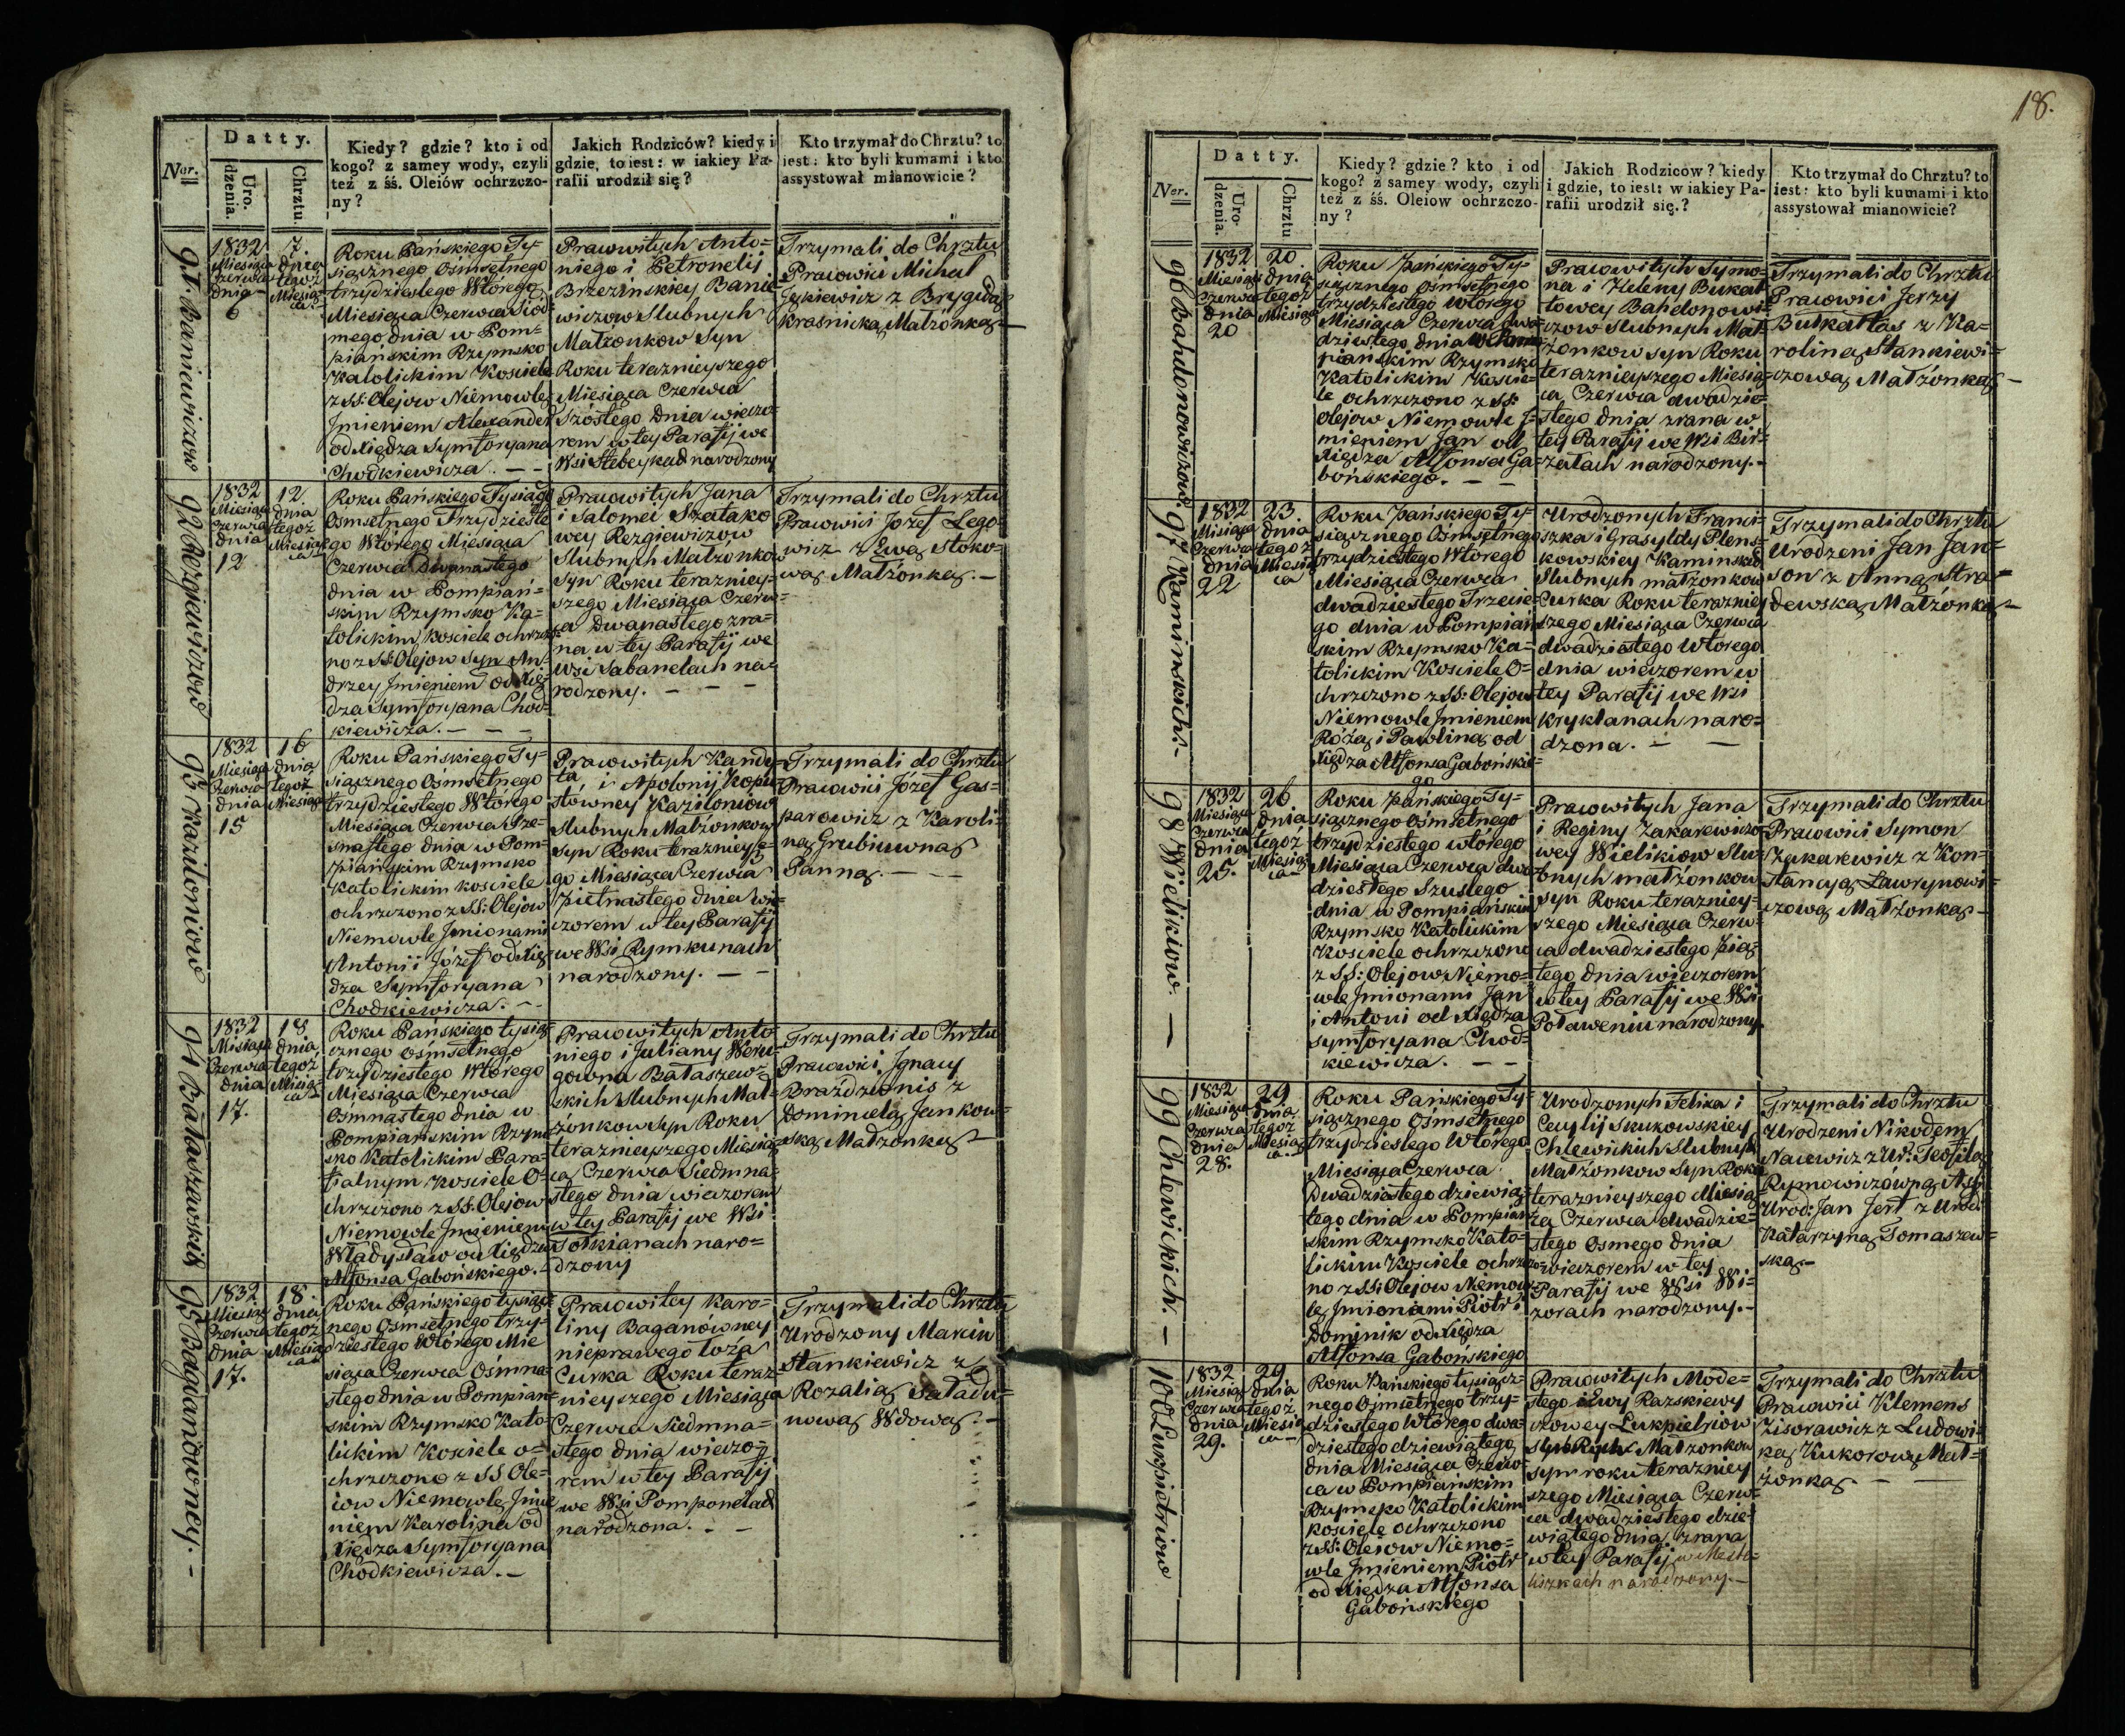 Ner.
Datty.
Urodzenia.
Chrztu.
Kiedy? gdzie? kto i od
kogo? z samey wody, czyli
też z śś. Oleiów ochrzczo-
ny?
Jakich Rodziców? kiedy i
gdzie, to iest: w iakiey Pa-
rafii urodził się?
Kto trzymał do Chrztu? to
iest: kto byli kumami i kto
assystował mianowicie?
91. Baniewiczow
1832
Miesiąca
Czerwca
dnia
6
7.
dnia
tegoż
Miesią-
ca.
Roku Pańskiego Ty-
siącznego Osmsetnego
trzydziestego Wtorego
Miesiąca Czerwca Siód-
mego dnia w Pom-
piańskim Rzymsko
Katolickim Kosciele
z SS: Olejow Niemowle
Jmieniem Alexander
od Xiędza Symforyana
Chodkiewicza. — –
Prawowitych Anto=
niego i Petronelij
Brzezinskiey Banie-
wiczow Slubnych
Małżonkow Syn
Roku teraznieyszego
Miesiąca Czerwca
Szóstego dnia wieczo-
rem w tey Parafij we
Wsi Stebeykach narodzony
Trzymali do Chrztu
Pracowici Michał
Jękiewicz z Brygidą
Krasnicką Małżonką —
92 Rezgiewiczow
1832
Miesiąca
Czerwca
dnia
12
12.
dnia
tegoż
Miesią-
ca
Roku Pańskiego Tysiącz
Osmsetnego Trzydzieste
go Wtórego Miesiąca
Czerwca Dwunastego
dnia w Pompiań-
skim Rzymsko Ka-
tolickim kosciele ochrzczo-
no z SS: Olejow Syn An-
drzey Jmieniem od Xię-
dza Symforyana Chod-
kiewicza. — – –
Pracowitych Jana
i Salomei Szatako
wey Rezgiewiczow
Slubnych Małżonkow
Syn Roku terazniey-
szego Miesiąca Czerw-
ca Dwanastego zra-
na w tey Parafij we
Wsi Sabanelach na-
rodzony. – — –
Trzymali do Chrztu
Pracowici Jozef Lego-
wicz z Ewą Stoko-
wą Małżonką. —
93 Kazilioniow
1832
Miesiąca
Czerwca
dnia
15
16
dnia
tegoż
Miesiąca
Roku Pańskiego Ty=
siącznego Ośmsetnego
trzydziestego Wtorego
Miesiąca Czerwca Sze-
snastego dnia w Pom-
piańskim Rzymsko
Katolickim kosciele
ochrzczono z SS: Olejow
Niemowle Jmionami
Antonii Józef od Xię-
dza Symforyana
Chodkiewicza. –
Pracowitych Kandy-
ta i Apolonij Kopu-
stówney Kazilioniow
Slubnych Małżonkow
syn Roku teraznieysze-
go Miesiąca Czerwca
piętnastego dnia wie-
czorem w tey Parafij
we Wsi Rymkunach
narodzony. — –
Trzymali do Chrztu
Pracowici Józef Gas-
parowicz z Karoli-
ną Grubiuwną
Panną. — –
94 Bałaszewskich
1832
Miesiąca
Czerwca
dnia
17.
18
dnia
tegoż
Miesią-
ca
Roku Pańskiego tysią-
cznego ośmsetnego
trzydziestego Wtórego
Miesiąca Czerwca
Osmnastego dnia w
Pompiańskim Rzym
sko Katolickim Para-
fialnym kosciele O-
chrzczono z SS. Olejow
Niemowle Jmieniem
Władysław od Xiędza
Alfonsa Gabońskiego.
Pracowitych Anto
niego i Juliany Weru-
gowna Bałaszew-
skich Slubnych Mał-
żonkow Syn Roku
teraznieyszego Miesią-
ca Czerwca Siedmna-
stego dnia wieczorem
w tey Parafij we Wsi
Tołkianach naro=
dzony
Trzymali do Chrztu
Pracowici Jgnacy
Brażdzionis z
Dominiclą Jankow-
ską Małżonką —
95 Baganówney. –
1832
Miesiąca
Czerwca
dnia
17.
18.
dnia
tegoż
Miesią
ca
Roku Pańskiego tysiącz-
nego Osmsetnego trzy-
dziestego Wtórego Mie
siąca Czerwca Ośmna-
stego dnia w Pompian-
skim Rzymsko Kato-
lickim Kosciele o=
chrzczono z SS Ole=
iow Niemowle Jmie
niem Karolina od
Xiędza Symforyana
Chodkiewicza. —
Pracowitey Karo=
liny Baganówney
nieprawego łoża
Curka Roku teraz-
nieyszego Miesiąca
Czerwca Siedmna=
stego dnia wieczo-
rem w tey Parafij
we Wsi Pomponelach
narodzona. – –
Trzymali do Chrztu
Urodzony Marcin
Stankiewicz z
Rozalią Saładu-
nową Wdową. –
18.
Ner.
Datty.
Uro-
dzenia.
Chrztu
Kiedy? gdzie? kto i od
kogo? z samey wody, czyli
też z śś. Oleiow ochrzczo-
ny?
Jakich Rodziców? kiedy
i gdzie, to iest: w iakiey Pa-
rafii urodził się.?
Kto trzymał do Chrztu? to
iest: kto byli kumami i kto
assystował mianowicie?
96 Bahdonowiczow
1832
Miesiąca
Czerwca
dnia
20
20.
dnia
tegoż
Miesiąca
Roku Pańskiego Ty-
siącznego Osmsetnego
trzydziestego Wtorego
Miesiąca Czerwca dwa-
dziestego dnia w Pom-
piańskim Rzymsko
Katolickim Koscie-
le ochrzczono z SS:
Olejow Niemowle J-
mieniem Jan od
Xiędza Alfonsa Ga-
bońskiego. — –
Pracowitych Symo-
na i Heleny Bukat
towey Bahdonowi-
czow Slubnych Mał-
żonkow syn Roku
teraznieyszego Miesią-
ca Czerwca dwudzie-
stego dnia zrana w
tey Parafij we Wsi Bir-
załach narodzony. –
Trzymali do Chrztu
Pracowici Jerzy
Butkattas z Ka=
roliną Stankiewi=
czową Małżonką —
97 Kaminskich. –
1832
Miesiąca
Czerwca
dnia
22
23.
dnia
tegoż
Miesią
ca
Roku Pańskiego Ty-
siącznego Osmsetnego
trzydziestego Wtorego
Miesiąca Czerwca
dwadziestego Trzecie-
go dnia w Pompiań-
skim Rzymsko Ka-
tolickim Kosciele O-
chrzczono z SS: Olejow
Niemowle Jmieniem
Róża i Pawlina od
Xiędza Alfonsa Gabońskie-
go
Urodzonych Franci-
szka i Grasyldy Plens-
kowskiey Kaminskich
Slubnych małżonkow
Curka Roku terazniey
szego Miesiąca Czerwca
dwadziestego Wtorego
dnia wieczorem w
tey Parafij we Wsi
Kryklanach naro=
dzona. – —
Trzymali do Chrztu
Urodzeni Jan Jan-
son z Anną Stra=
dewską Małżonką —
98 Wielikiow. —
1832
Miesiąca
Czerwca
dnia
25.
26
dnia
tegoż
Miesią
ca
Roku Pańskiego Ty-
siącznego Ośmsetnego
trzydziestego wtórego
Miesiąca Czerwca dwa
dziestego Szustego
dnia w Pompiańskim
Rzymsko Katolickim
Kosciele ochrzczono
z SS: Olejow Niemo-
wle Jmionami Jan
i Antoni od Xiędza
Symforyana Chod-
kiewicza. — –
Pracowitych Jana
i Reginy Zakarewiczo-
wey Wielikiow Slu-
bnych małżonkow
syn Roku terazniey-
szego Miesiąca Czerw-
ca dwadziestego pią-
tego dnia wieczorem
w tey Parafij we Wsi
Poławeniu narodzony.
Trzymali do Chrztu
Pracowici Symon
Zakarewicz z Kon-
stancyą Ławrynowi-
czową Małżonką —
99 Chlewickich. –
1832
Miesiąca
Czerwca
dnia
28.
29
dnia
tegoż
Miesią
ca.
Roku Pańskiego Ty-
siącznego Ośmsetnego
trzydziestego Wtorego
Miesiąca Czerwca
Dwadziestego dziewią-
tego dnia w Pompian-
skim Rzymsko Kato-
lickim Kosciele ochrzczo-
no z SS: Olejow Niemow
le Jmionami Piotr i
Dominik od Xiędza
Alfonsa Gabońskiego
Urodzonych Felixa i
Cecylij Skukowskiey
Chlewickich Slubnych
Małżonkow Syn Roku
teraznieyszego Miesią-
ca Czerwca dwadzie-
stego Osmego dnia
wieczorem w tey
Parafij we Wsi Wi-
zorach narodzony. –
Trzymali do Chrztu
Urodzeni Nikodem
Nacewicz z Ur: Teofilą
Rymowiczówną Ass:
Urod: Jan Jert z Urod:
Katarzyną Tomaszew=
ską –
100 Lukpietriow
1832
Miesiąca
Czerwca
dnia
29.
29
dnia
tegoż
Miesią
ca
Roku Pańskiego tysiącz-
nego Ośmsetnego trzy-
dziestego Wtórego dwa-
dziestego dziewiątego
dnia Miesiąca Czerw-
ca w Pompiańskim
Rzymsko Katolickim
kosciele ochrzczono
z SS: Olesow Niemo=
wle Jmieniem Piotr
od Xiędza Alfonsa
Gabońskiego
Pracowitych Mode-
stego i Ewy Razskiewy
czowey Lukpietriow
Slubnych Małżonkow
syn roku terazniey
szego Miesiąca Czerw-
ca dwadziestego dzie-
wiątego dnia zrana
w tey Parafij w
narodzony. –
Trzymali do Chrztu
Pracowici Klemens
Zisorawicz z Ludowi-
ką Kukorową Mał-
żonką — –